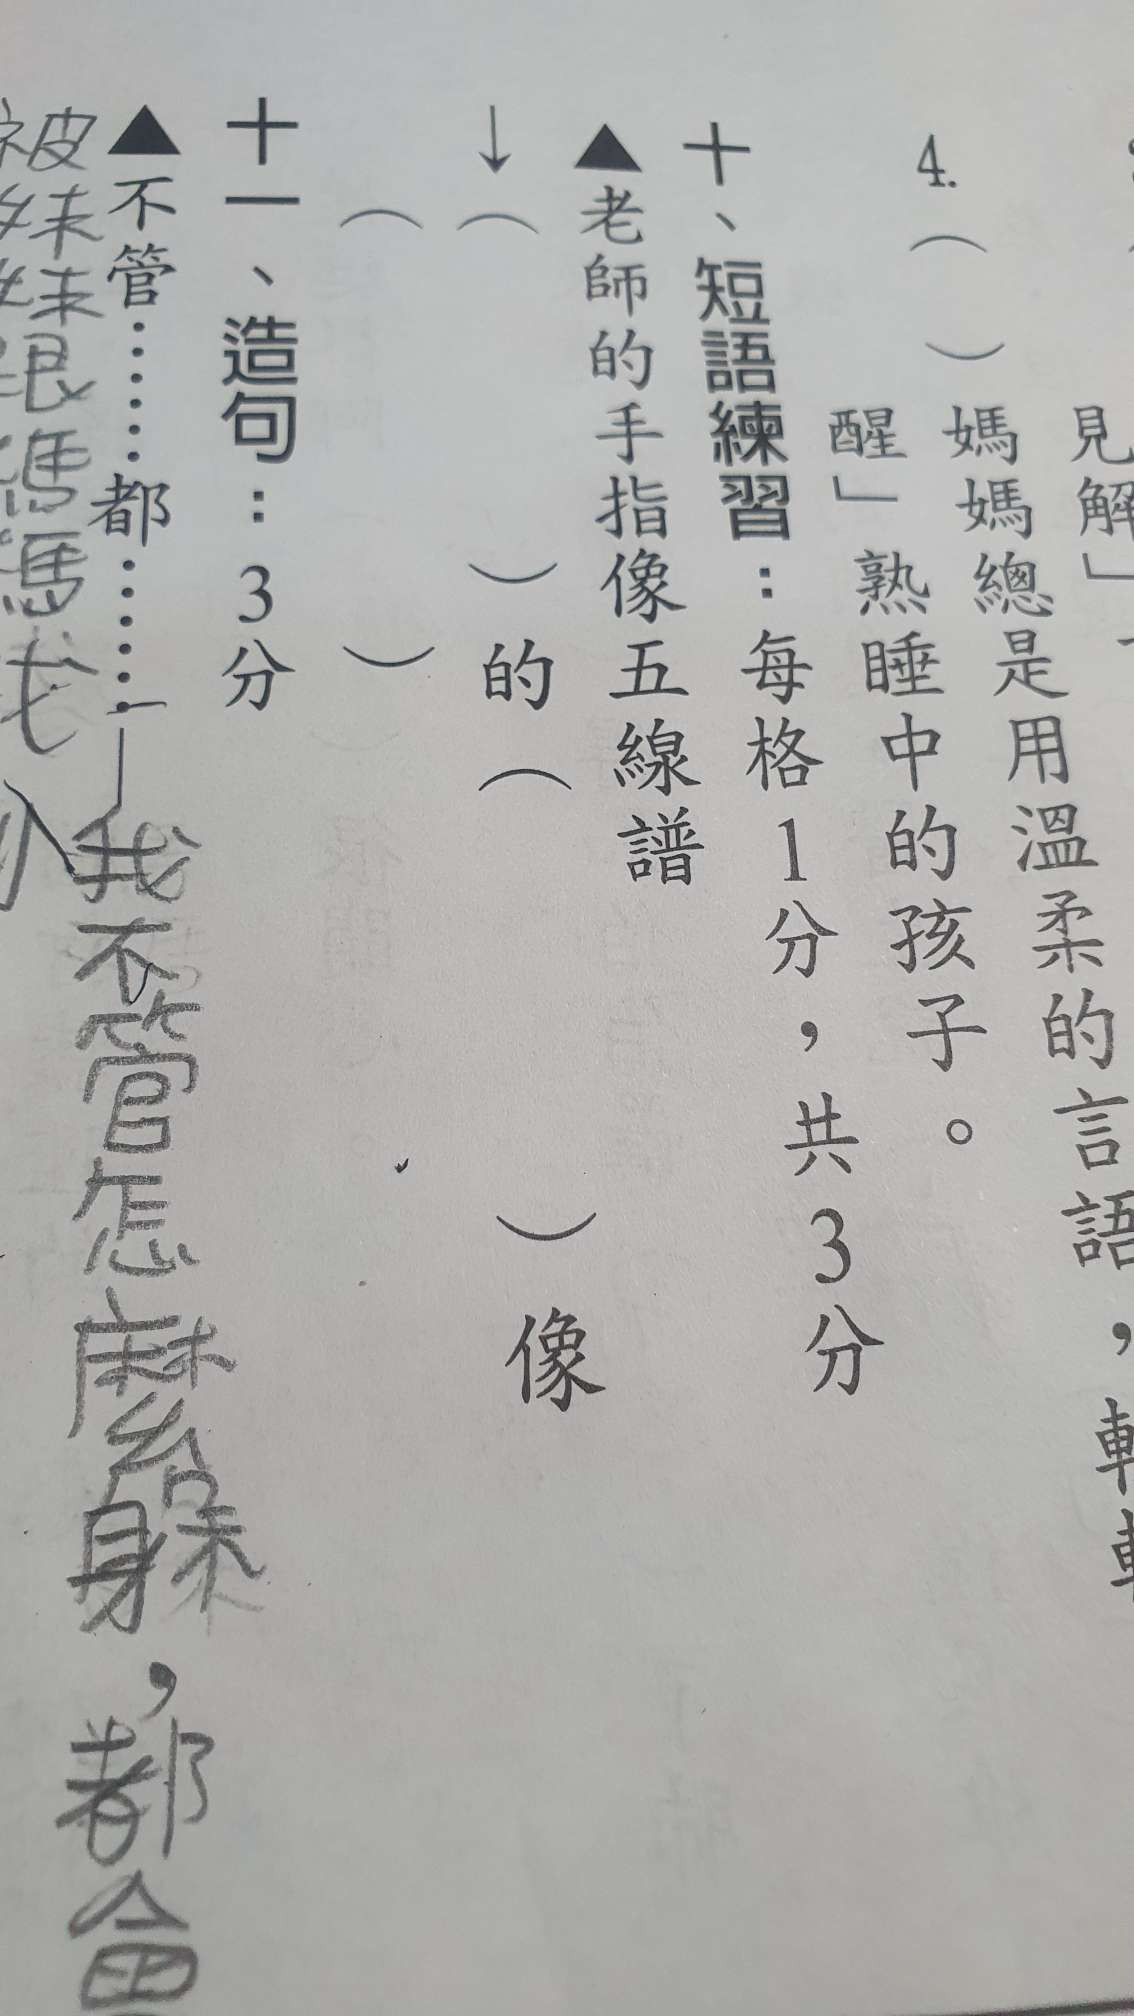 見解」
4.（　）媽媽總是用溫柔的言語，輕輕
醒」熟睡中的孩子。
十、短語練習：每格1分，共3分
▲老師的手指像五線譜
↓（　）的（　）像
（　）
十一、造句：3分
▲不管………都………
我不管怎麼躲，都會
被妹妹跟媽媽找